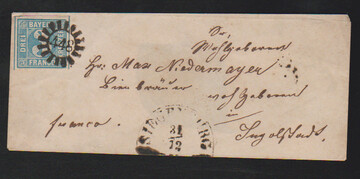 BAYER
DREI
FRANCO
Sr.
Wohlgeboren
Hr. Max Niedermayer
Bierbräuer
wohlgeboren
franco.
in
Ingolstadt.
31
12